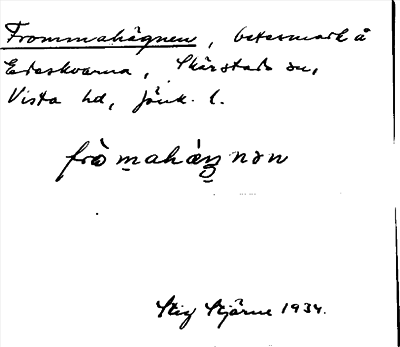 Frommahägnen, betesmark å
Edeskvarna, Skärstads sn,
Vista hd, Jönk. l.
fròmahàŋnən
Stig Stjärne 1934.